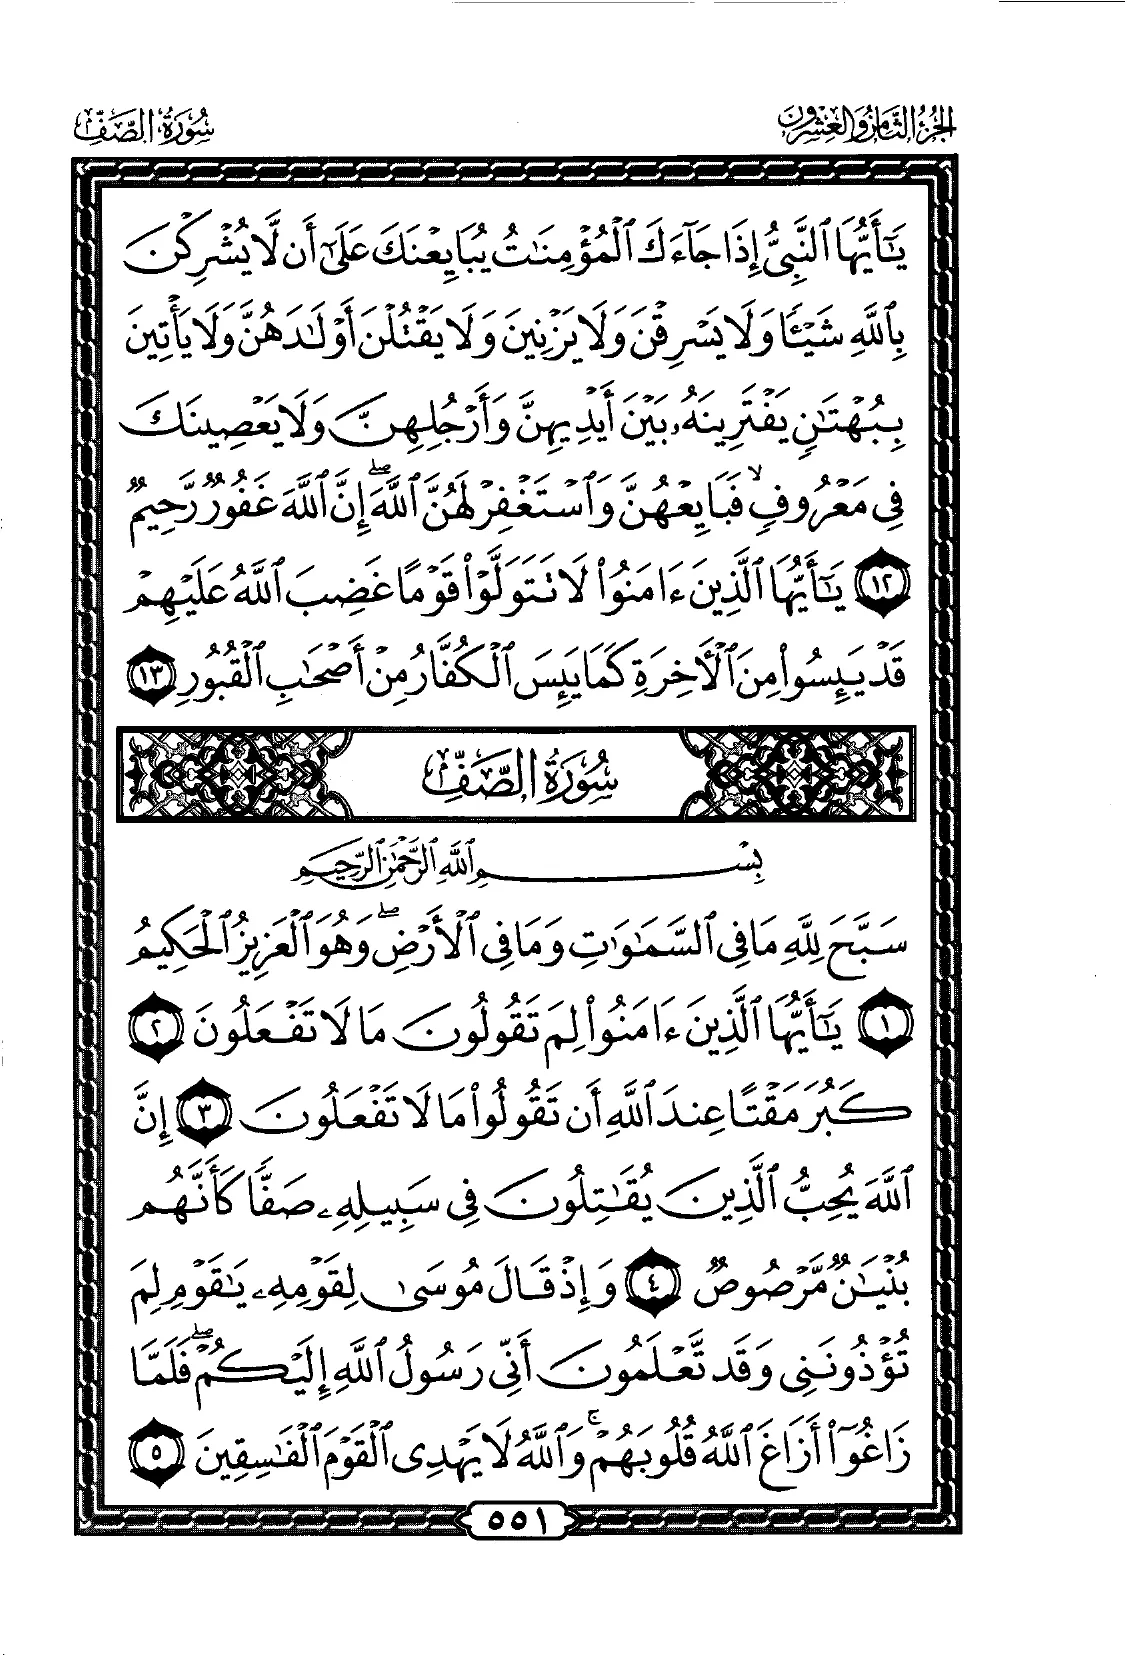 الجزء الثامن والعشرون
سورة الصف
يَٰٓأَيُّهَا ٱلنَّبِىُّ إِذَا جَآءَكَ ٱلْمُؤْمِنَٰتُ يُبَايِعْنَكَ عَلَىٰٓ أَن لَّا يُشْرِكْنَ
بِٱللَّهِ شَيْـًٔا وَلَا يَسْرِقْنَ وَلَا يَزْنِينَ وَلَا يَقْتُلْنَ أَوْلَٰدَهُنَّ وَلَا يَأْتِينَ
بِبُهْتَٰنٍ يَفْتَرِينَهُۥ بَيْنَ أَيْدِيهِنَّ وَأَرْجُلِهِنَّ وَلَا يَعْصِينَكَ
فِى مَعْرُوفٍ ۙ فَبَايِعْهُنَّ وَٱسْتَغْفِرْ لَهُنَّ ٱللَّهَ ۖ إِنَّ ٱللَّهَ غَفُورٌ رَّحِيمٌ
١٢ يَٰٓأَيُّهَا ٱلَّذِينَ ءَامَنُوا۟ لَا تَتَوَلَّوْا۟ قَوْمًا غَضِبَ ٱللَّهُ عَلَيْهِمْ
قَدْ يَئِسُوا۟ مِنَ ٱلْأَخِرَةِ كَمَا يَئِسَ ٱلْكُفَّارُ مِنْ أَصْحَٰبِ ٱلْقُبُورِ ١٣
سُورَةُ الصَّفِّ
بِسْمِ اللَّهِ الرَّحْمَٰنِ الرَّحِيمِ
سَبَّحَ لِلَّهِ مَا فِى ٱلسَّمَٰوَٰتِ وَمَا فِى ٱلْأَرْضِ ۖ وَهُوَ ٱلْعَزِيزُ ٱلْحَكِيمُ
١ يَٰٓأَيُّهَا ٱلَّذِينَ ءَامَنُوا۟ لِمَ تَقُولُونَ مَا لَا تَفْعَلُونَ ٢
كَبُرَ مَقْتًا عِندَ ٱللَّهِ أَن تَقُولُوا۟ مَا لَا تَفْعَلُونَ ٣ إِنَّ
ٱللَّهَ يُحِبُّ ٱلَّذِينَ يُقَٰتِلُونَ فِى سَبِيلِهِۦ صَفًّا كَأَنَّهُم
بُنْيَٰنٌ مَّرْصُوصٌ ٤ وَإِذْ قَالَ مُوسَىٰ لِقَوْمِهِۦ يَٰقَوْمِ لِمَ
تُؤْذُونَنِى وَقَد تَّعْلَمُونَ أَنِّى رَسُولُ ٱللَّهِ إِلَيْكُمْ ۖ فَلَمَّا
زَاغُوٓا۟ أَزَاغَ ٱللَّهُ قُلُوبَهُمْ ۚ وَٱللَّهُ لَا يَهْدِى ٱلْقَوْمَ ٱلْفَٰسِقِينَ ٥
٥٥١